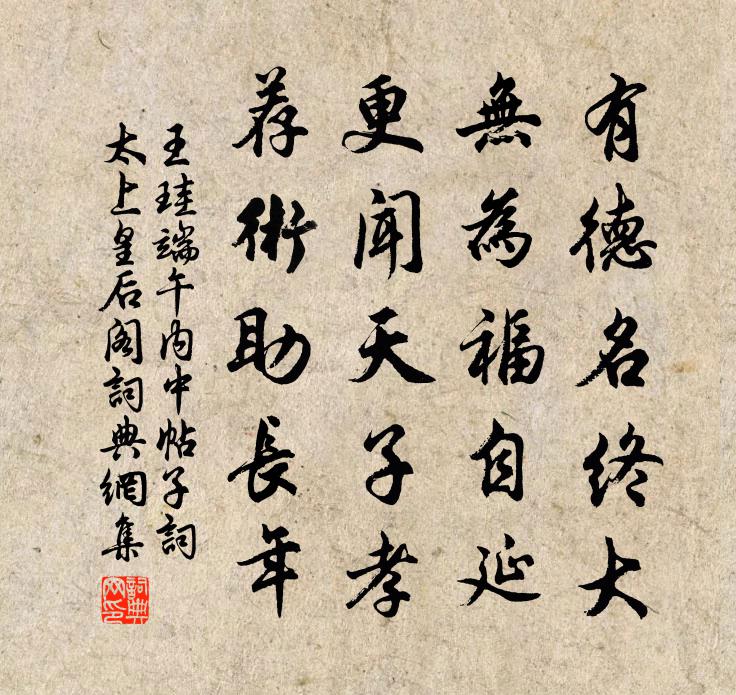 有德名終大
無為福自延
更聞天子孝
荐術助長年
王珪端午内中帖子詞
太上皇后阁詞典網集
詞典
网印